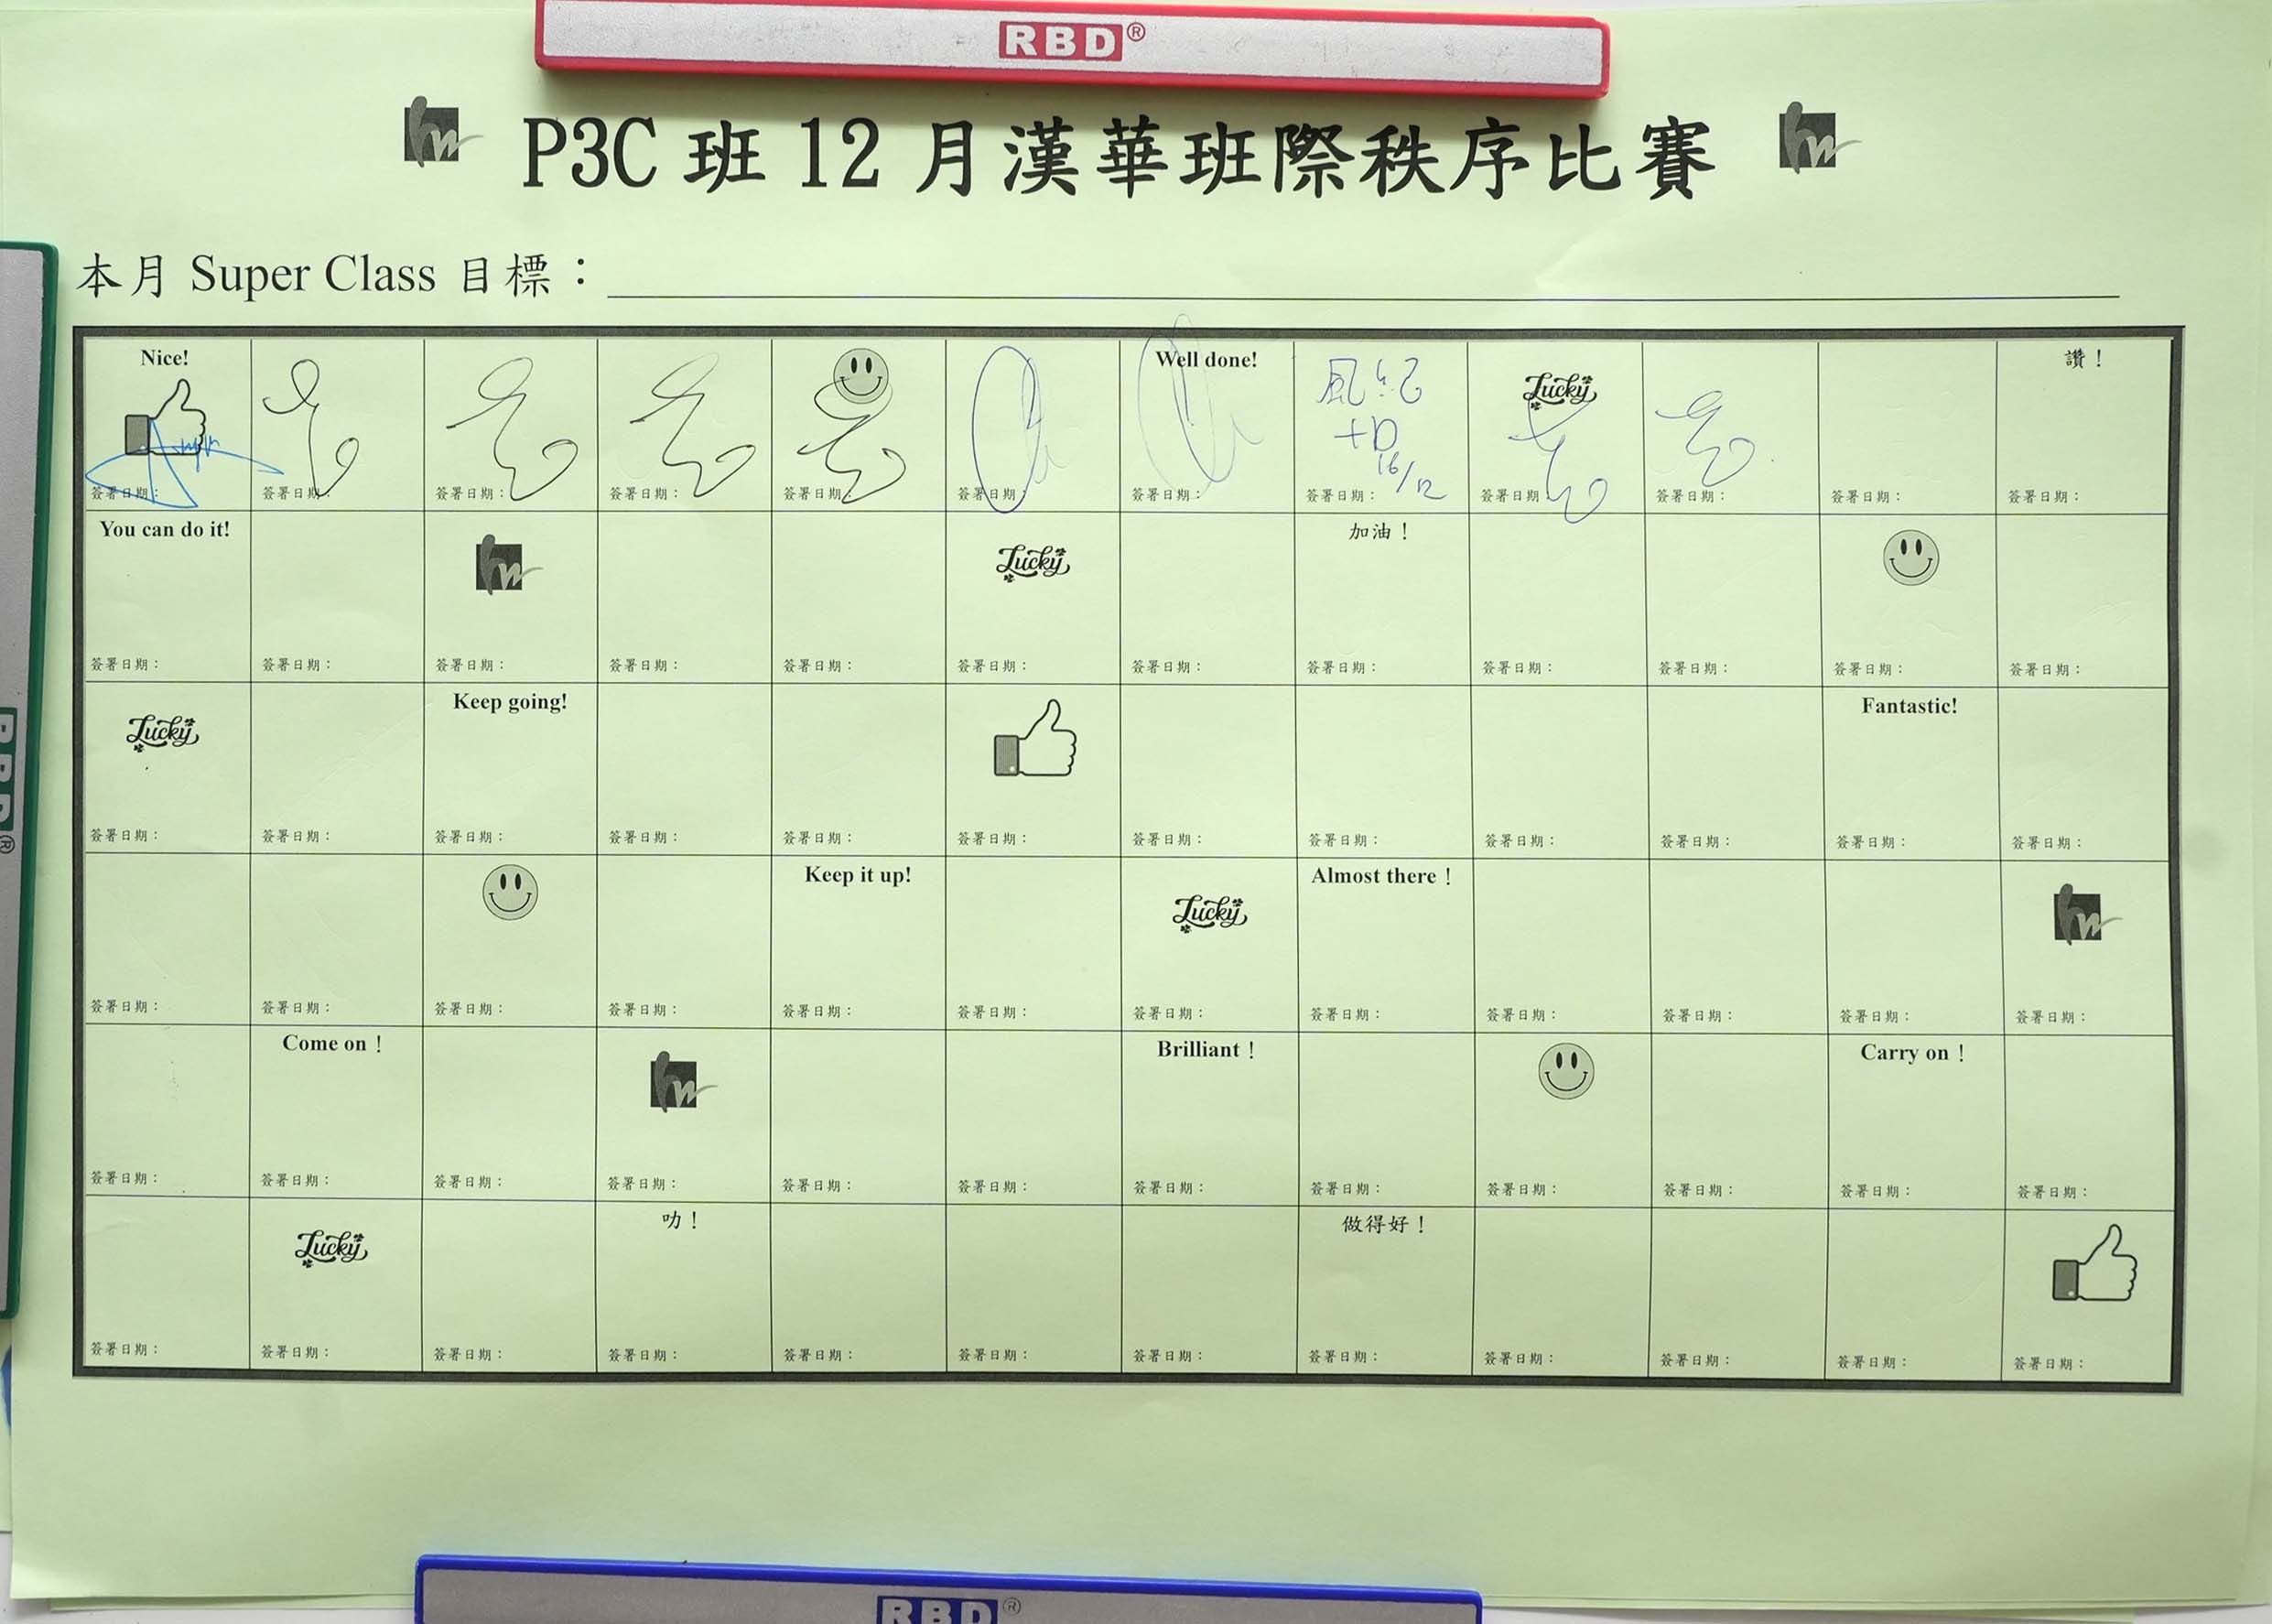 RBD®
P3C 班 12 月漢華班際秩序比賽
本月 Super Class 目標：
Nice!
Well done!
風紀
+10
16/12
Lucky
讚！
簽署日期： 簽署日期： 簽署日期： 簽署日期： 簽署日期： 簽署日期： 簽署日期： 簽署日期： 簽署日期： 簽署日期： 簽署日期： 簽署日期：
You can do it!
hw
Lucky
加油！
簽署日期： 簽署日期： 簽署日期： 簽署日期： 簽署日期： 簽署日期： 簽署日期： 簽署日期： 簽署日期： 簽署日期： 簽署日期： 簽署日期：
Lucky
Keep going!
Fantastic!
簽署日期： 簽署日期： 簽署日期： 簽署日期： 簽署日期： 簽署日期： 簽署日期： 簽署日期： 簽署日期： 簽署日期： 簽署日期： 簽署日期：
Keep it up!
Lucky
Almost there！
hw
簽署日期： 簽署日期： 簽署日期： 簽署日期： 簽署日期： 簽署日期： 簽署日期： 簽署日期： 簽署日期： 簽署日期： 簽署日期： 簽署日期：
Come on！
hw
Brilliant！
Carry on！
簽署日期： 簽署日期： 簽署日期： 簽署日期： 簽署日期： 簽署日期： 簽署日期： 簽署日期： 簽署日期： 簽署日期： 簽署日期： 簽署日期：
Lucky
叻！
做得好！
簽署日期： 簽署日期： 簽署日期： 簽署日期： 簽署日期： 簽署日期： 簽署日期： 簽署日期： 簽署日期： 簽署日期： 簽署日期： 簽署日期：
RBD®